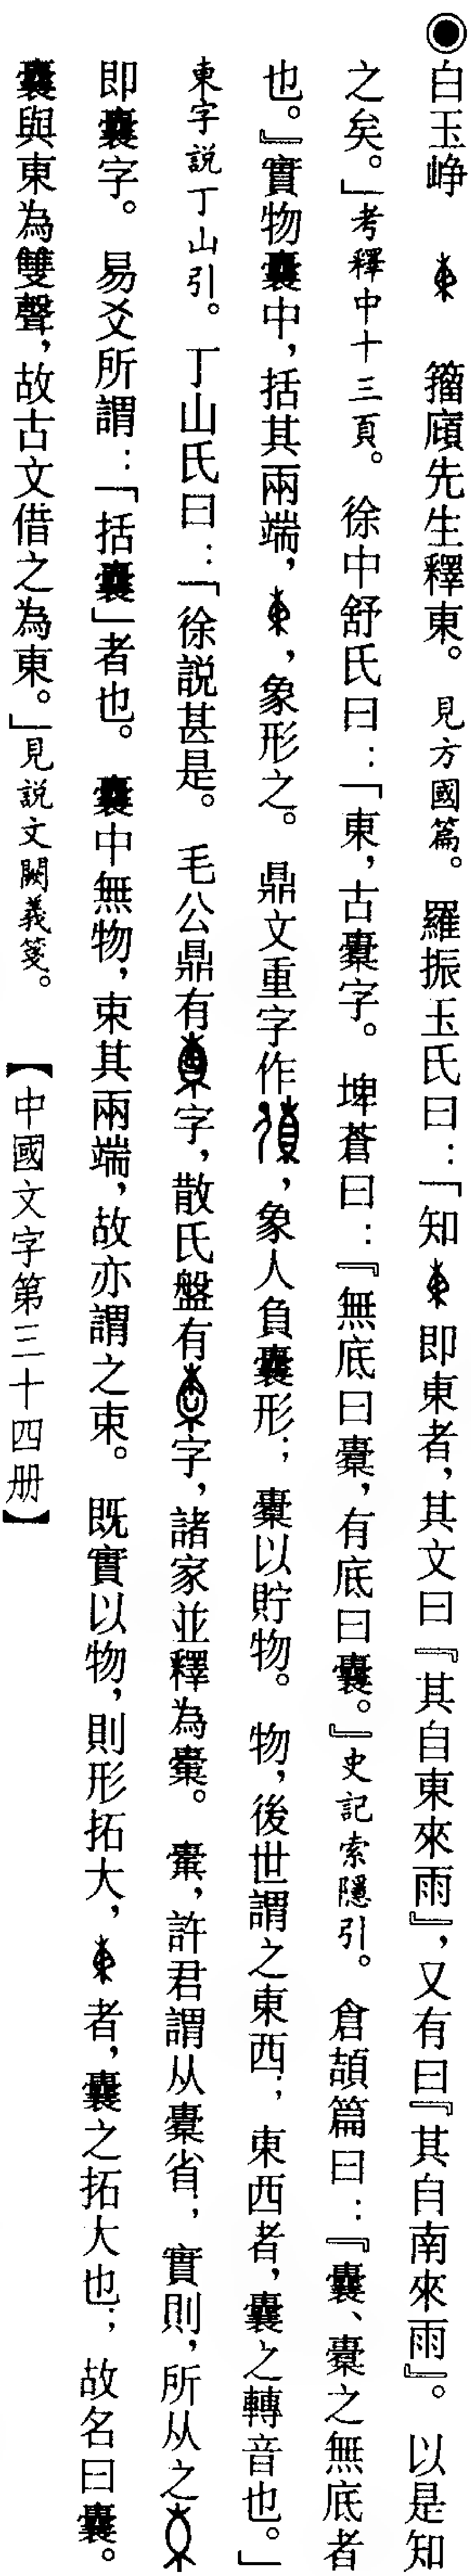 ◉白玉崢　籀廎先生釋東。見方國篇。羅振玉氏曰：「知　即東者，其文曰『其自東來雨』，又有曰『其自南來雨』。以是知
之矣。」考釋中十三頁。徐中舒氏曰：「東，古橐字。埤蒼曰：『無底曰橐，有底曰囊。』史記索隱引。倉頡篇曰：『囊、橐之無底者
也。』實物囊中，括其兩端，　，象形之。鼎文重字作　，象人負囊形；橐以貯物。物，後世謂之東西；東西者，囊之轉音也。」
東字說丁山引。丁山氏曰：「徐說甚是。毛公鼎有　字，散氏盤有　字，諸家並釋為橐。橐，許君謂从橐省；實則，所从之
即囊字。易爻所謂：「括囊」者也。囊中無物，束其兩端，故亦謂之束。既實以物，則形拓大，　者，囊之拓大也；故名曰囊。
囊與東為雙聲，故古文借之為東。」見說文闕義箋。【中國文字第三十四册】